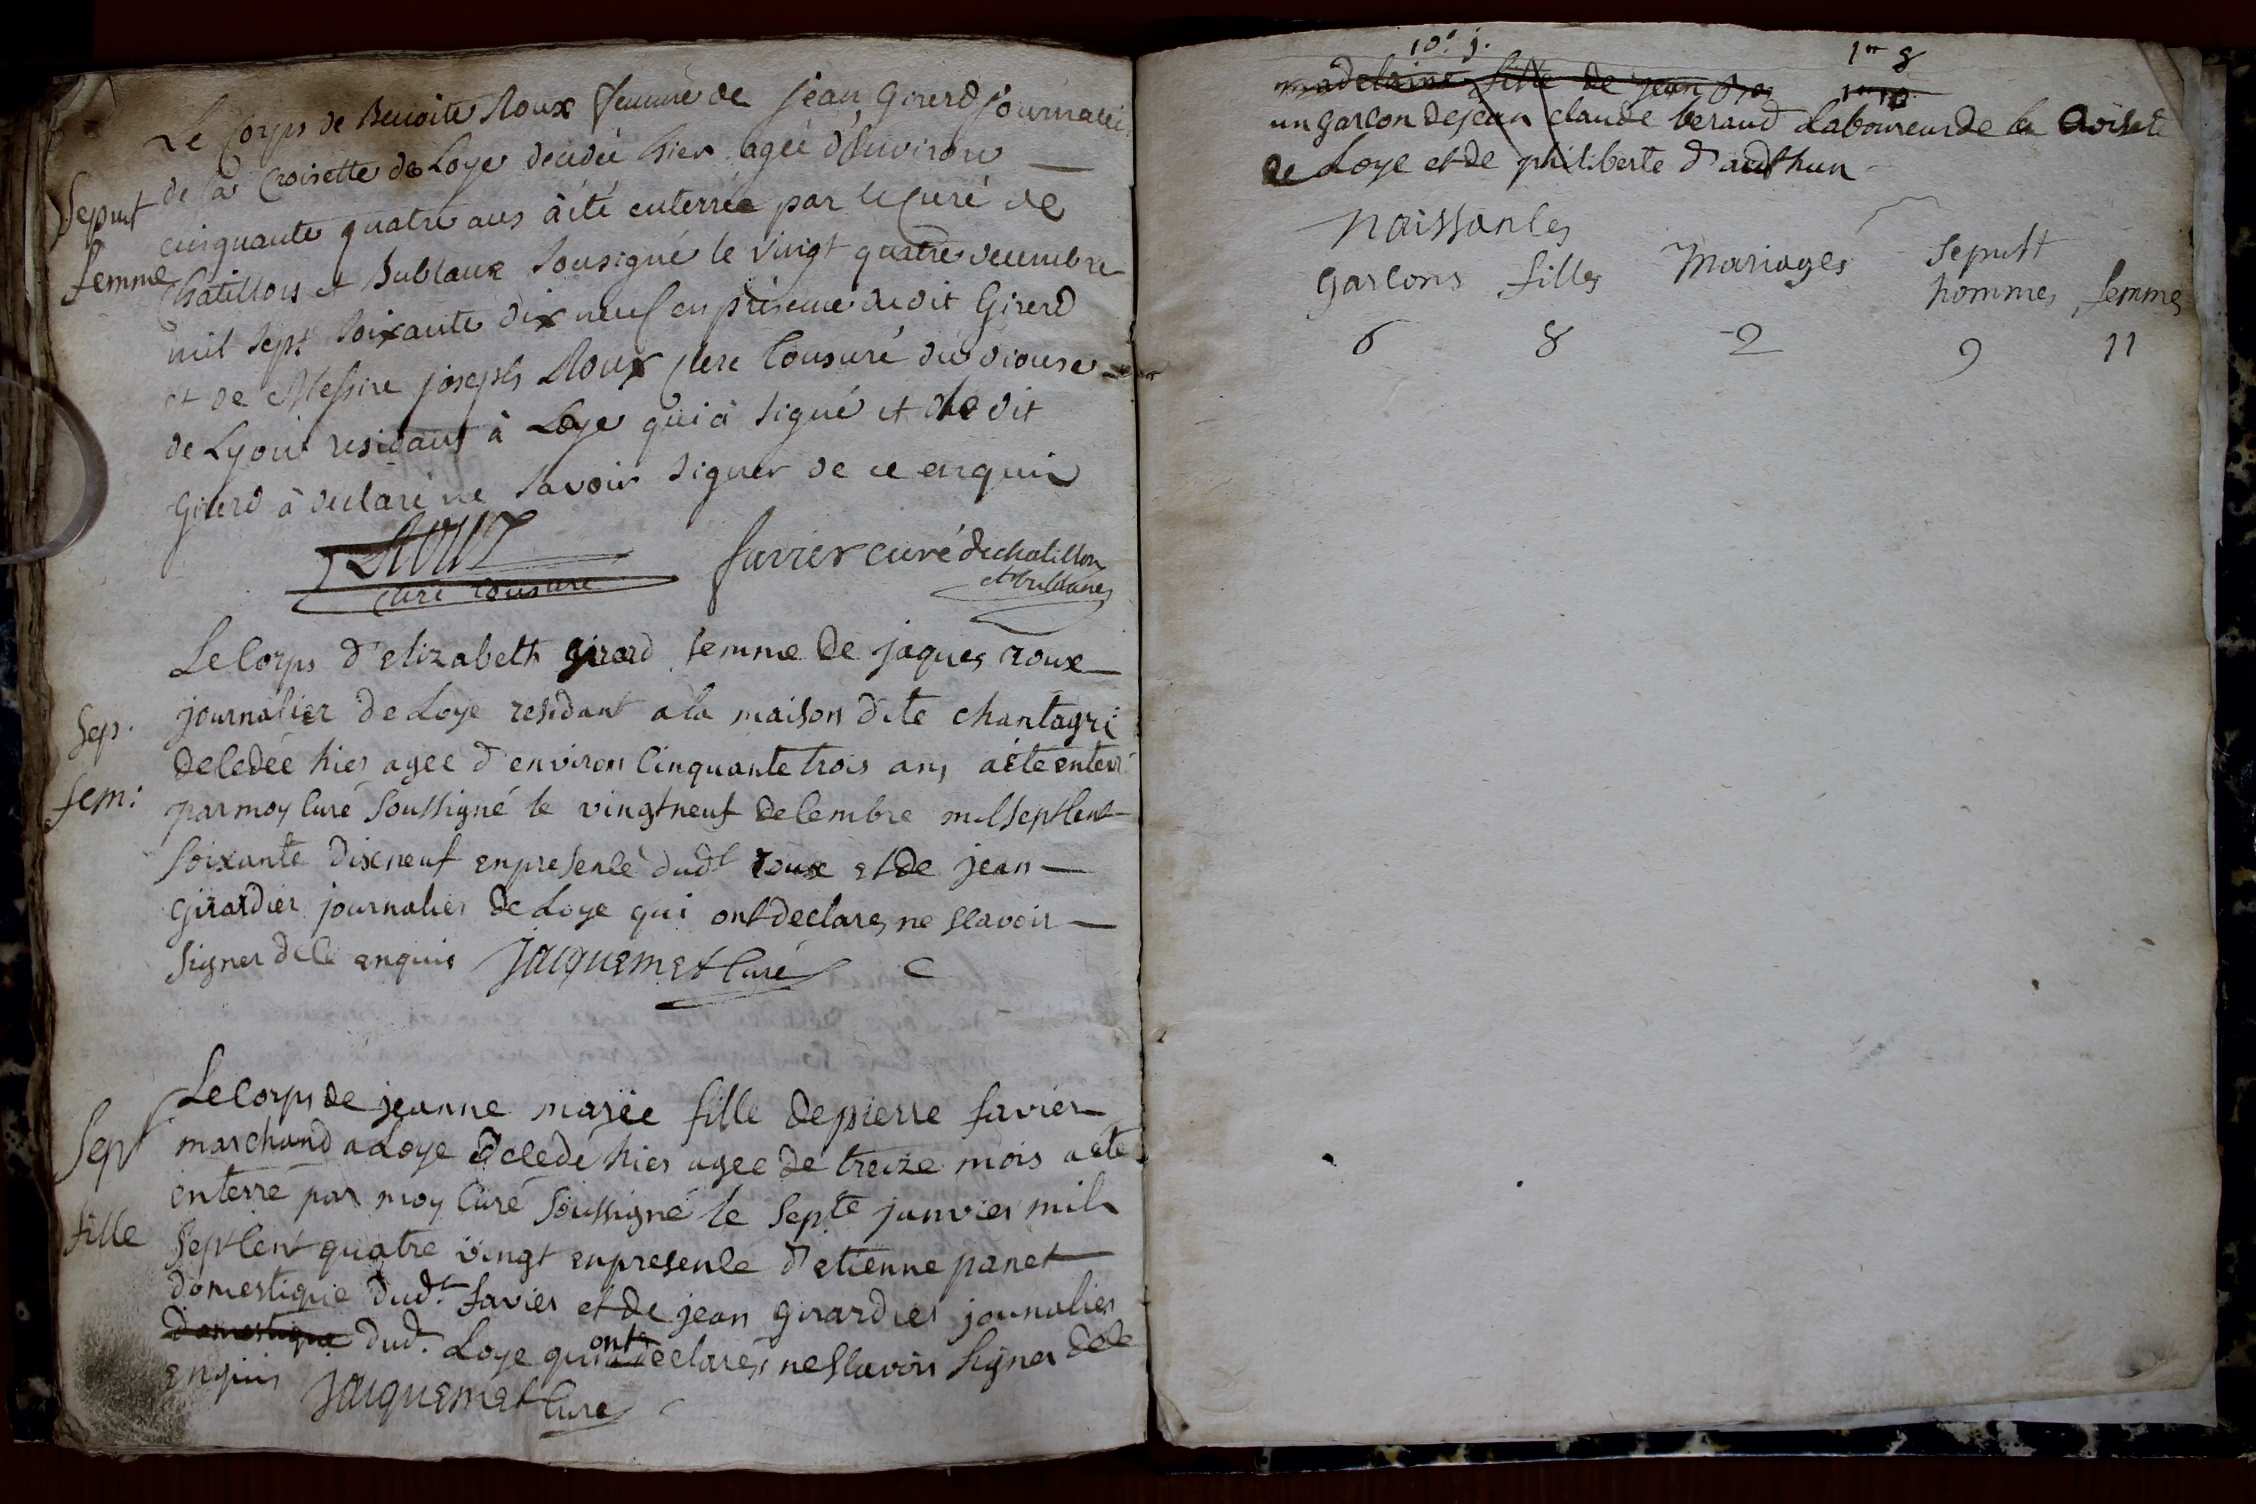 Le Corps de Benoite Roux femme de jean Girerd journalier
de la Croisette de Loye decedée hier agée d'Environ
Sepult
cinquante quatre ans à été enterrée par le Curé de
femme
Chatillon et Bublane Sousigné le vingt quatre decembre
mil sept soixante dix neuf en présence dudit Girerd
et de Messire joseph Roux Clerc Tonsuré du diouse
de Lyon residant à Loye qui à signé et le dit
Girerd à declaré ne savoir signer de ce enquis
ROUX
Clerc tonsuré
favier curé de chatillon
et bublanes
Le Corps d'elizabeth girerd femme de jaques roux
journalier de Loye residant a la maison dite chantagri
Sep.
decedée hier agee d'environ cinquante trois ans a été enterré
fem:
par moy curé soussigné le vingt neuf decembre mil sept cent
soixante dix neuf en presence dudt roux et de jean
girardier journalier de Loye qui ont declares ne scavoir
signer de ce enquis jacquemet curé
Le corps de jeanne marie fille de pierre favier
Sept
marchand a Loye decedé hier agee de treize mois a eté
enterré par moy curé soussigné le septe janvier mil
fille
sept cent quatre vingt en presence d'etienne panet
domestique dudt favier et de jean girardier journalier
domestique dud. Loye qui ont declarés ne scavoir signer de ce
enquis jacquemet curé
10e j. 1er 8
madelaine fille de jean
un garcon de jean claude beraud Laboureur de la Croisete
de Loye et de philiberte d'authun
naissances
garcons filles Mariages Sepult
hommes femmes
6 8 2 9 11